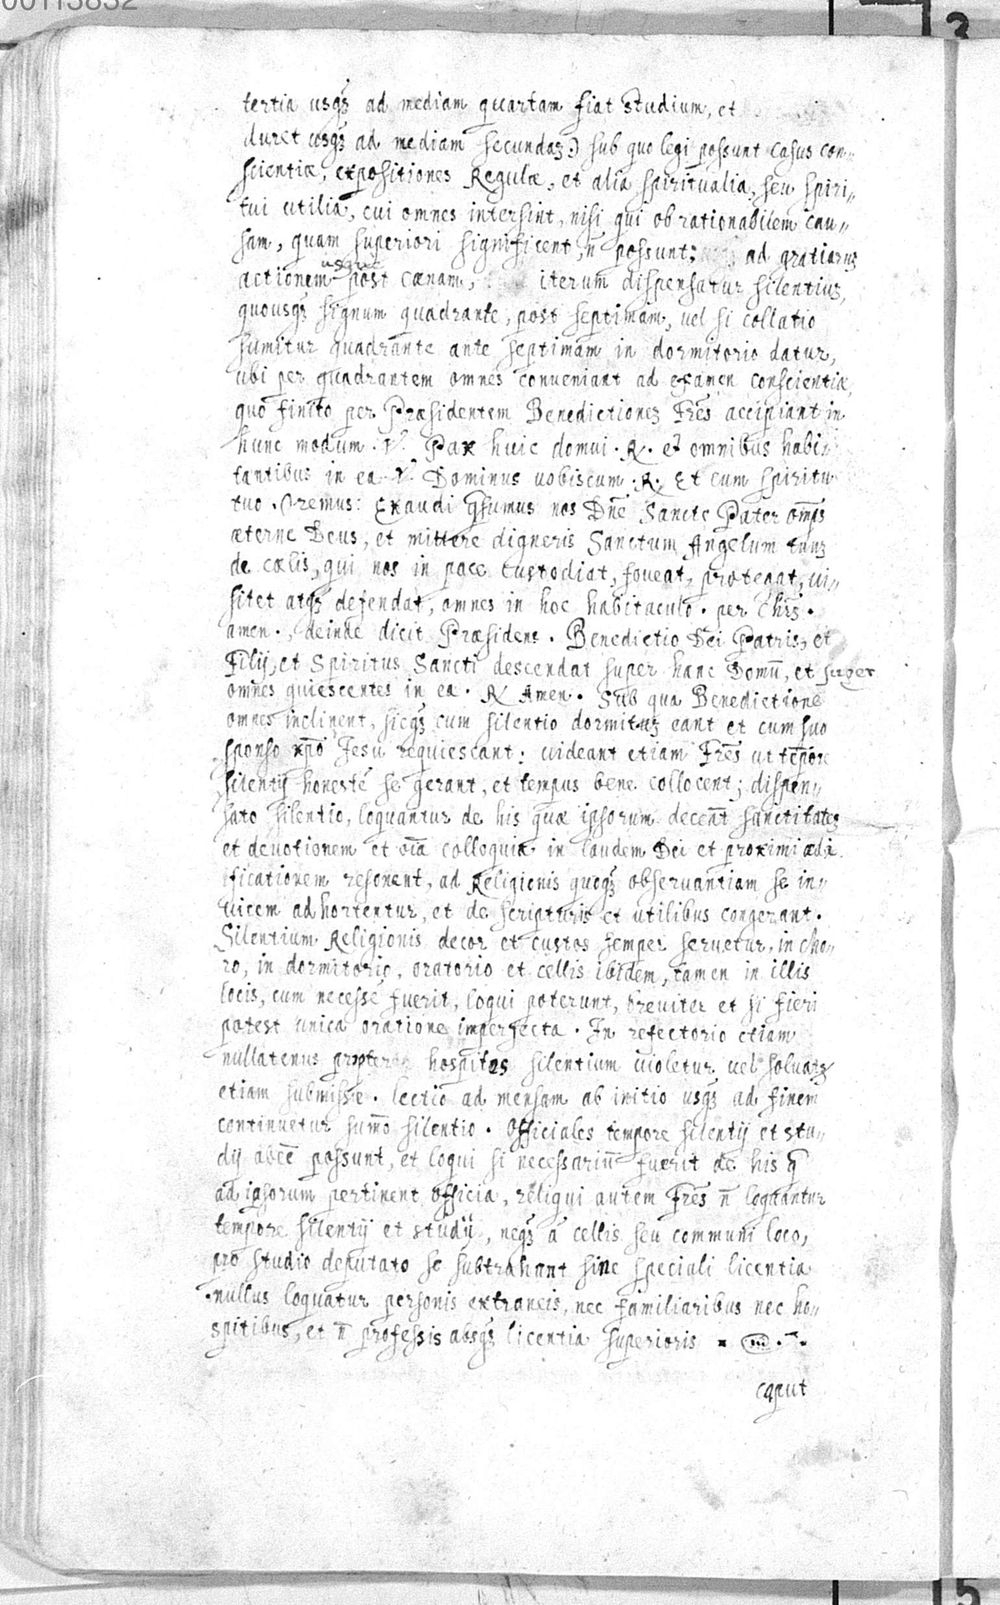 00113832
3
tertia usq₃ ad mediam quartam fiat studium, et
duret usq₃ ad mediam secundaʒ) sub quo legi possunt casus con„
scientiæ, expositiones Regulæ, et alia spiritualia, seu spiri„
tui utilia, cui omnes intersint, nisi qui ob rationabilem cau„
sam, quam superiori significent, n̄ possunt; ad gratiaruʒ
usque
actionem post cænam, iterum dispensatur silentiuʒ,
quousq₃ signum quadrante, post septimam, vel si collatio
sumitur quadrante ante septimam in dormitorio datur,
ubi per quadrantem omnes conveniant ad examen conscientiæ,
quo finito per Præsidentem Benedictioneʒ Frēs accipiant in
hunc modum. V. Pax huic domui. R. et omnibus habi„
tantibus in ea. V. Dominus vobiscum. R. Et cum spiritu
tuo. Oremus: Exaudi q̄sumus nos Dn̄e Sancte Pater omp̄s
æterne Deus, et mittere digneris Sanctum Angelum tuuʒ
de cælis, qui nos in pace custodiat, foveat, protegat, vi„
sitet atq₃ defendat, omnes in hoc habitaculo. per Chr̄s.
amen., deinde dicit Præsidens. Benedictio Dei Patris, et
Filij, et Spiritus Sancti descendat super hanc Domū, et super
omnes quiescentes in ea. R Amen. Sub qua Benedictione
omnes inclinent, sicq₃ cum silentio dormituʒ eant et cum suo
sponso xp̄o Jesu requiescant: videant etiam Frēs ut tēpore
silentij honesté se gerant, et tempus bene collocent; dispen„
sato silentio, loquantur de his quæ ipsorum decēt sanctitateʒ
et devotionem et oīa colloquia in laudem Dei et proximi ædi
ificationem resonent, ad Religionis quoq₃ observantiam se in„
vicem adhortentur, et de scripturis et utilibus congerant.
Silentium Religionis decor et custos semper servetur, in cho„
ro, in dormitorio, oratorio et cellis ibidem, tamen in illis
locis, cum necesse fuerit, loqui poterunt, breviter et si fieri
potest unica oratione imperfecta. In refectorio etiam
nullatenus propter hospites silentium violetur vel solvatʒ
etiam submisse. lectio ad mensam ab initio usq₃ ad finem
continuetur sum̄o silentio. Officiales tempore silentij et stu„
dij abēē possunt, et loqui si necessariū fuerit de his q̄
ad ipsorum pertinent officia, reliqui autem Frēs n̄ loquantur
tempore silentij et studij, neq₃ a cellis seu communi loco,
pro studio deputato se subtrahant sine speciali licentia
nullus loquatur personis extraneis, nec familiaribus nec ho„
spitibus, et n̄ professis absq₃ licentia superioris
caput
15